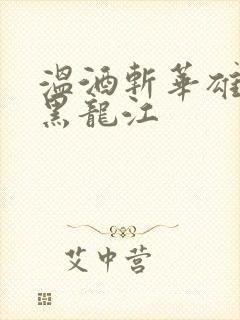 溫酒斬華雄
黑龍江
艾中营